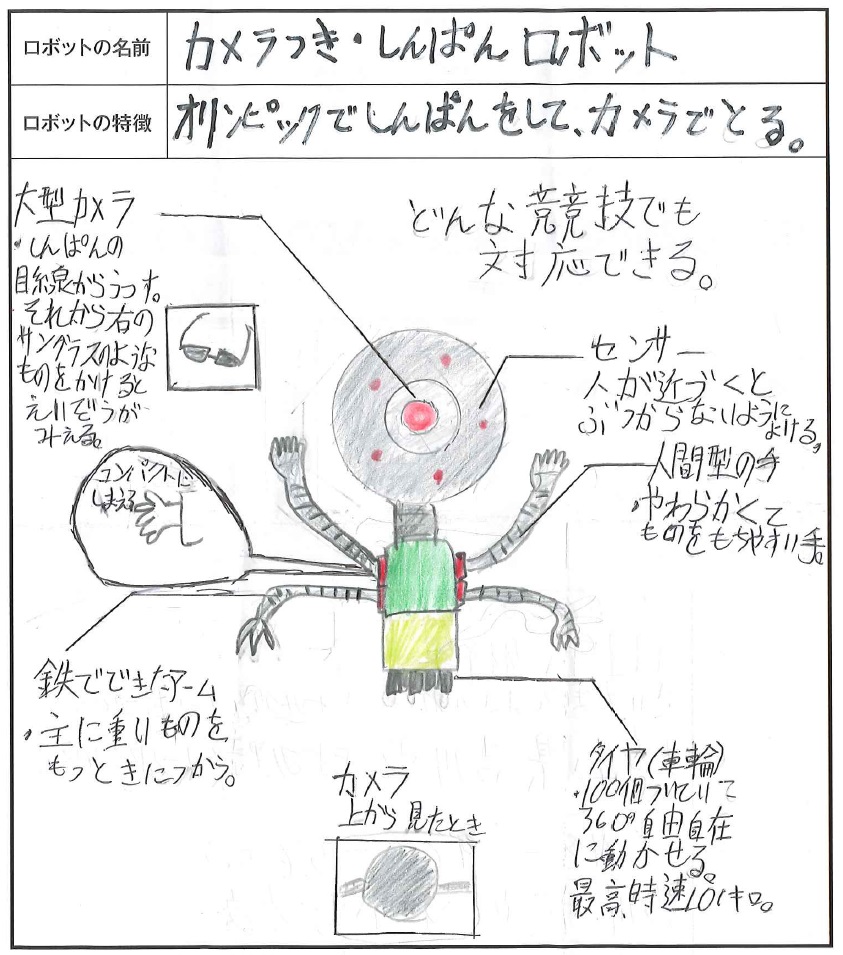 ロボットの名前
カメラつき・しんぱんロボット
ロボットの特徴
オリンピックでしんぱんをして、カメラでとる。
大型カメラ
・しんぱんの
目線からうつす。
それから右の
サングラスのような
ものをかけると
えいぞうが
みえる。
どんな競技でも
対応できる。
センサー
人が近づくと
ぶつからないように
よける。
人間型の手
・やわらかくて
ものをもちやすい手。
コンパクトに
しまえる
鉄でできたアーム
・主に重いものを
もつときにつかう。
タイヤ(車輪)
・100個ついていて
360°自由自在
に動かせる。
最高時速101キロ。
カメラ
上から見たとき